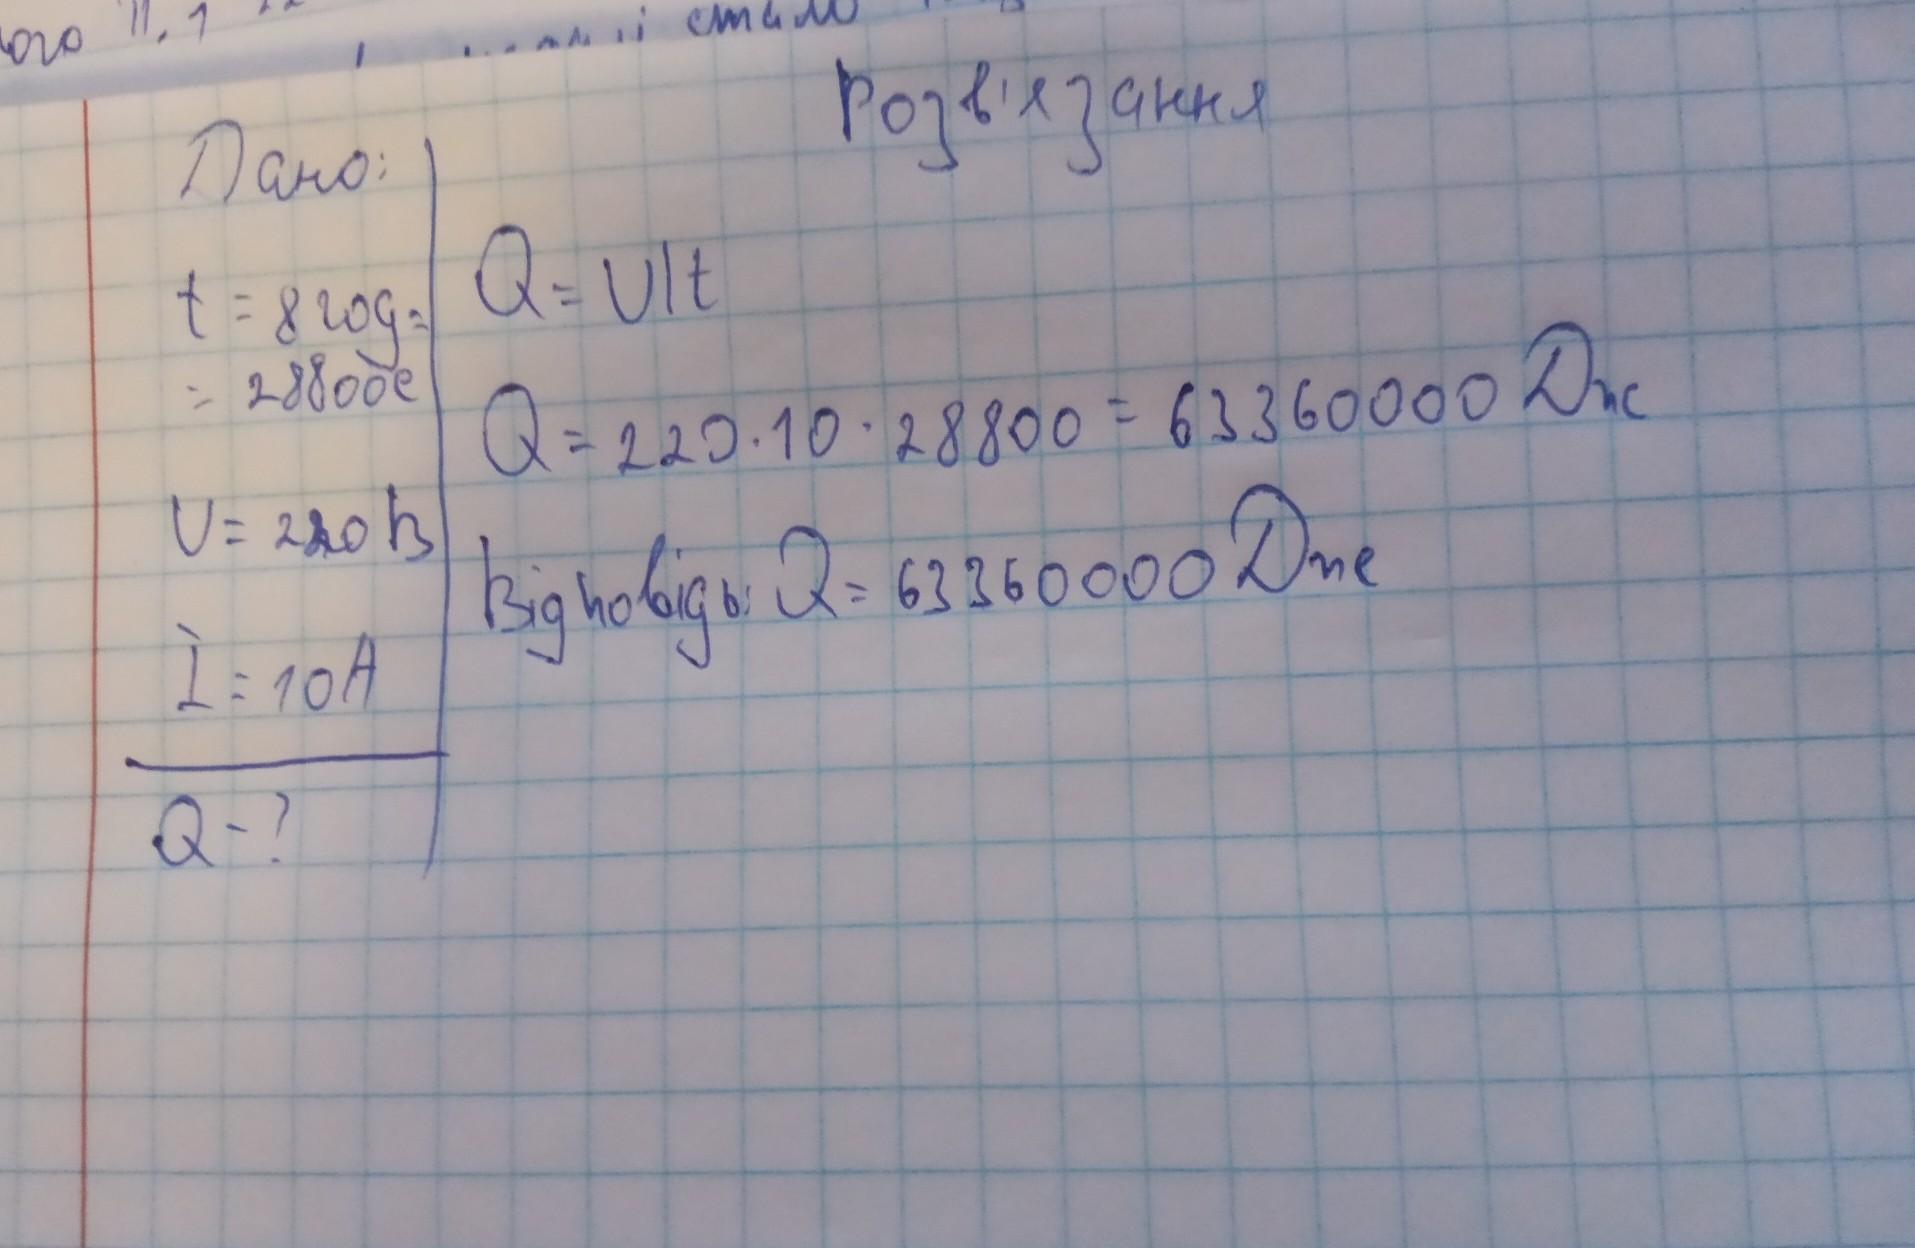 ого
стало
Розв'язання
Дано:
t = 8 год =
= 28800с
U = 220 В
I = 10А
Q - ?
Q = UIt
Q = 220 · 10 · 28800 = 63360000 Дж
Відповідь: Q = 63360000 Дж